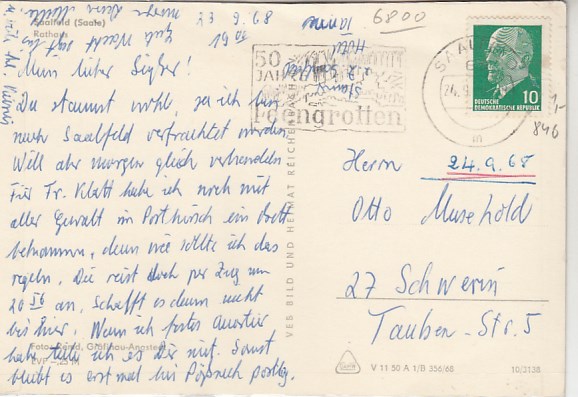 Saalfeld (Saale)
Rathaus
23.9.68
19 00
Mein lieber Sigher!
Du staunst wohl, da ich bin
nach Saalfeld verfrachtet worden.
Will aber morgen gleich verhandeln
Für Fr. Klatt habe ich noch mit
aller Gewalt im Posthirsch ein Bett
bekommen, denn wie sollte ich das
regeln. Die reist doch per Zug um
20 56 an, schafft es denn nicht
bis hier. Wenn ich festes Quartier
habe teile ich es Dir mit. Sonst
bleibt es erst mal bei Pößneck postlg.
VEB BILD UND HEIMAT REICHENBACH
6800
50
JAHRE
Feengrotten
SAALFELD
DEUTSCHE
DEMOKRATISCHE REPUBLIK 10
1,-
846
Herrn 24.9.68
Otto Musehold
27 Schwerin
Tauben-Str. 5
V 11 50 A 1/B 356/68
10/2138